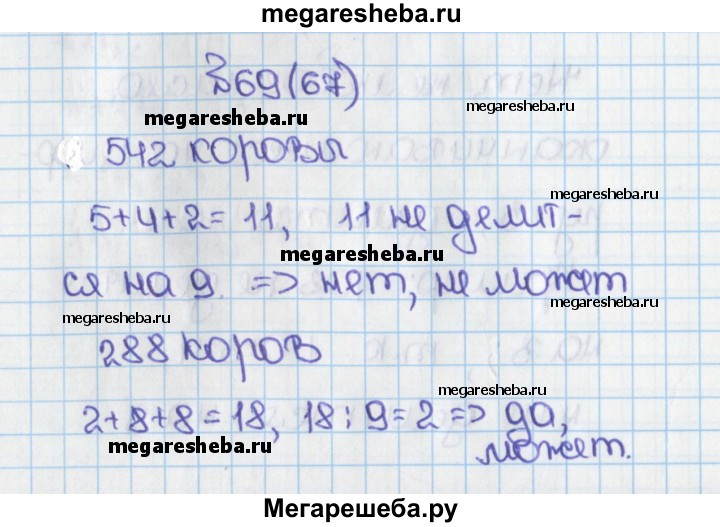 megaresheba.ru
№69(67)
megaresheba.ru
megaresheba.ru
542 коровы
megaresheba.ru
5+4+2=11, 11 не делит-
megaresheba.ru
ся на 9 => нет, не может
megaresheba.ru
megaresheba.ru
288 коров
megaresheba.ru
megaresheba.ru
2+8+8=18, 18:9=2 => да,
megaresheba.ru
может.
Мегарешеба.ру